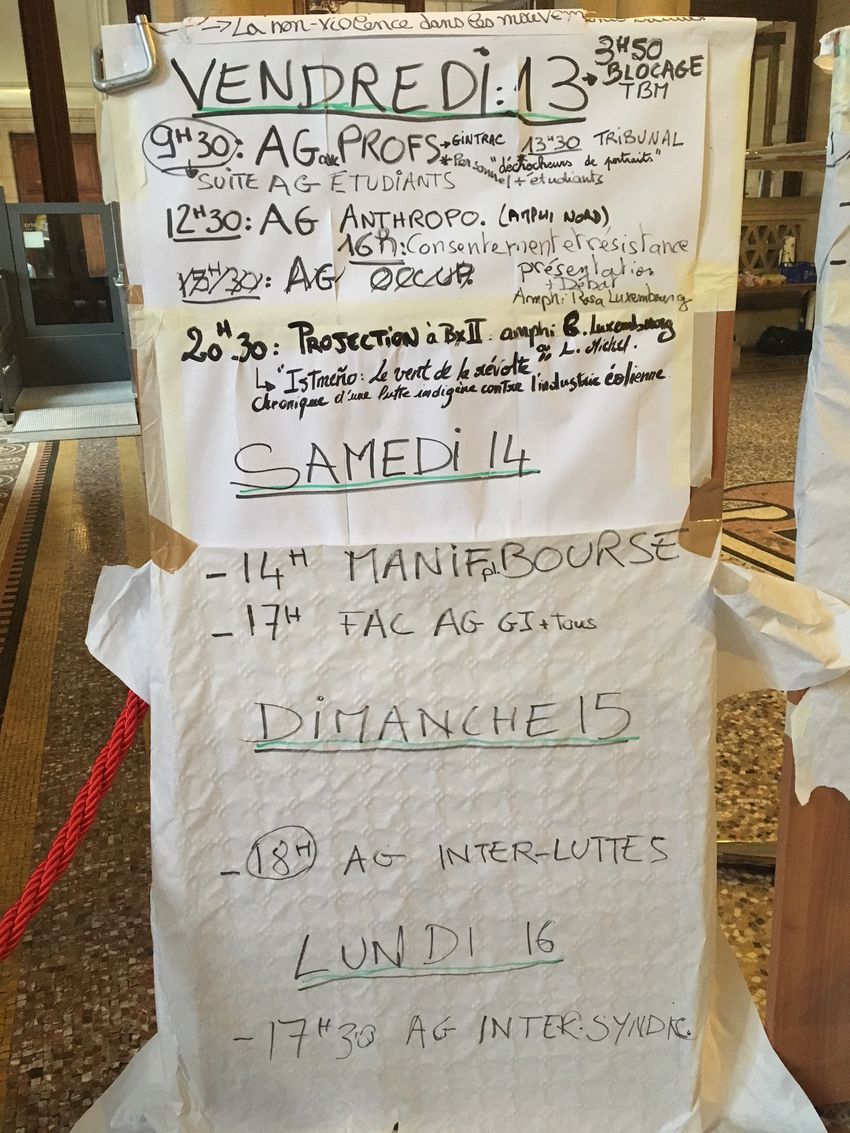 → La non-violence dans les mouvem
VENDREDI: 13 → 3H50
BLOCAGE
TBM
9H30: AG PROFS → GINTRAC
* Personnel + étudiants
13H30 TRIBUNAL
"décrocheurs de portraits"
↳ SUITE AG ÉTUDIANTS
12H30: AG ANTHROPO. (AMPHI NORD)
16h: Consentement et résistance
présentation
+ Débat
Amphi: Rosa Luxembourg
13H30: AG OCCUP.
20H30: PROJECTION à BxII: amphi R. Luxembourg
ou L. Michel.
↳ "ISTMEÑO: Le vent de la révolte"
Chronique d'une lutte indigène contre l'industrie éolienne
SAMEDI 14
- 14H MANIF pl. BOURSE
- 17H FAC AG GJ + Tous
DIMANCHE 15
- 18H AG INTER-LUTTES
LUNDI 16
- 17H30 AG INTER-SYNDIC